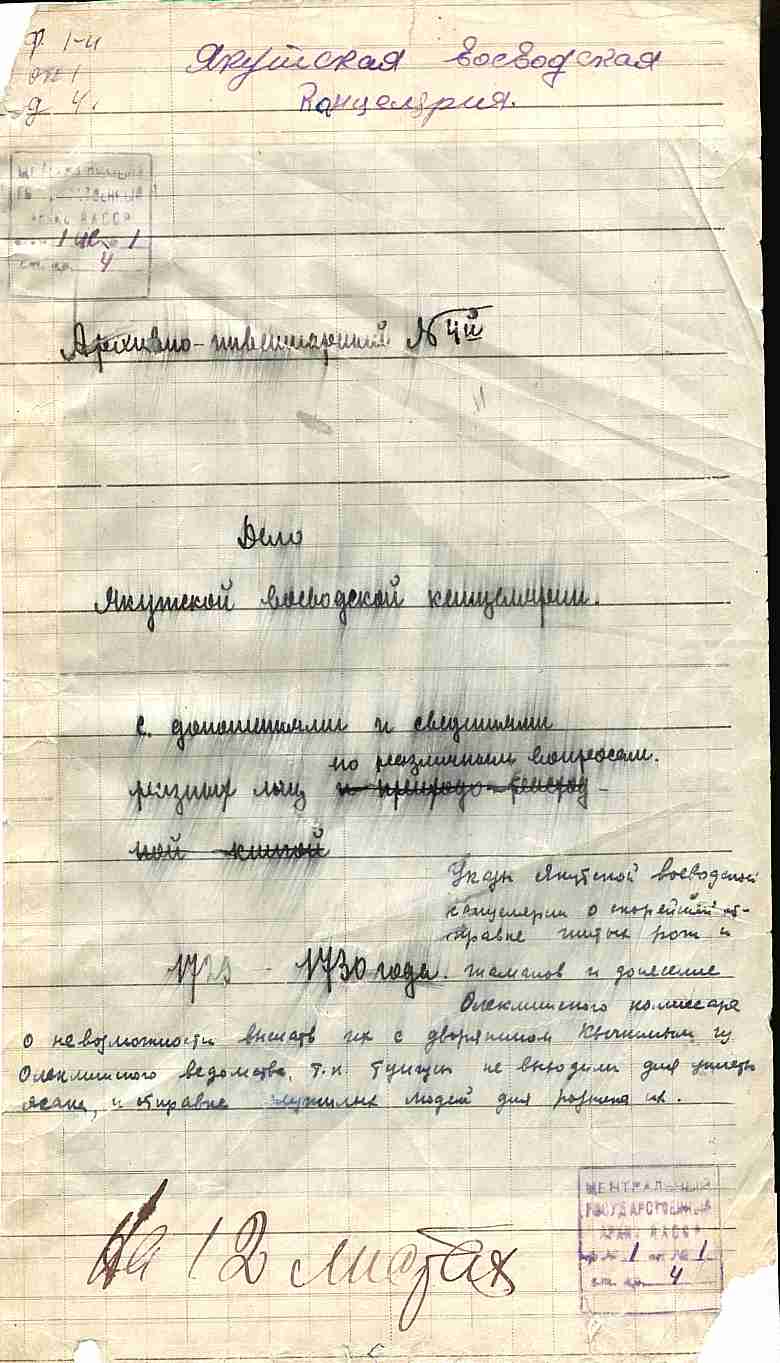 ф. 1-и
оп 1
д 4.
Якутская воеводская
Канцелярия.
ЦЕНТРАЛЬНЫЙ
ГОСУДАРСТВЕННЫЙ
АРХИВ ЯАССР
1 и 1
ед. хр. 4
Архивно-инвентарный № 4й
Дело
Якутской воеводской канцелярии.
с доношениями и сведениями
по различным вопросам.
разных лиц
ной книгой
Указы Якутской воеводской
канцелярии о скорейшей от-
правке шитых рож и
1723 - 1730 года. шаманов и донесение
Олекминского комиссара
о невозможности выслать их с дворянином из
Олекминского ведомства, т.к. тунгусы не выходили для уплаты
ясака, и отправке служилых людей для розыска их.
На 12 листах
ЦЕНТРАЛЬНЫЙ
ГОСУДАРСТВЕННЫЙ
АРХИВ ЯАССР
ф. № 1 оп. № 1
ед. хр. 4